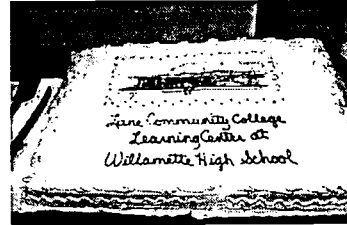 Lane Community College
Learning Center at
Willamette High School